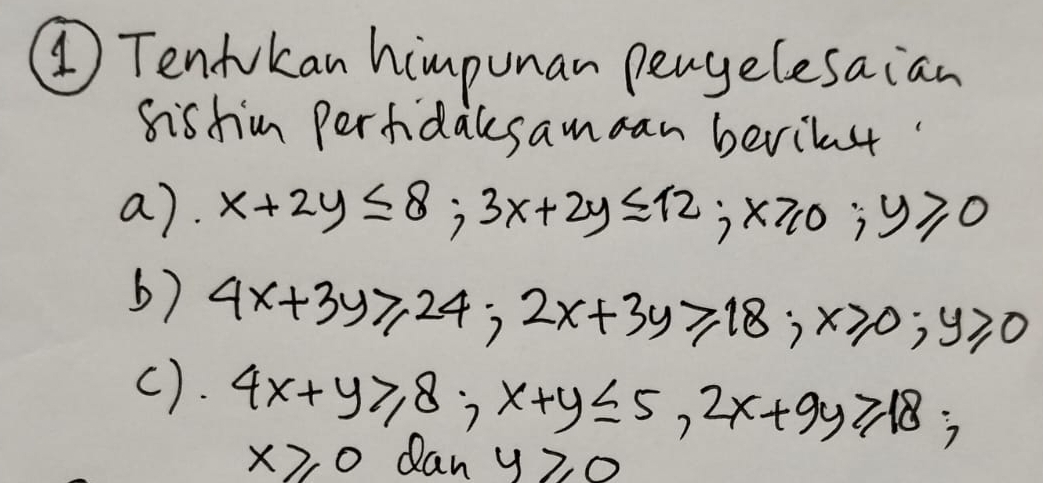 ① Tentukan himpunan penyelesaian
sistim pertidaksamaan berikut
a). x+2y ≤ 8 ; 3x+2y ≤ 12 ; x ≥ 0 ; y ≥ 0
b) 4x+3y ≥ 24 ; 2x+3y ≥ 18 ; x ≥ 0 ; y ≥ 0
c). 4x+y ≥ 8 ; x+y ≤ 5 , 2x+9y ≥ 18 ;
x ≥ 0 dan y ≥ 0